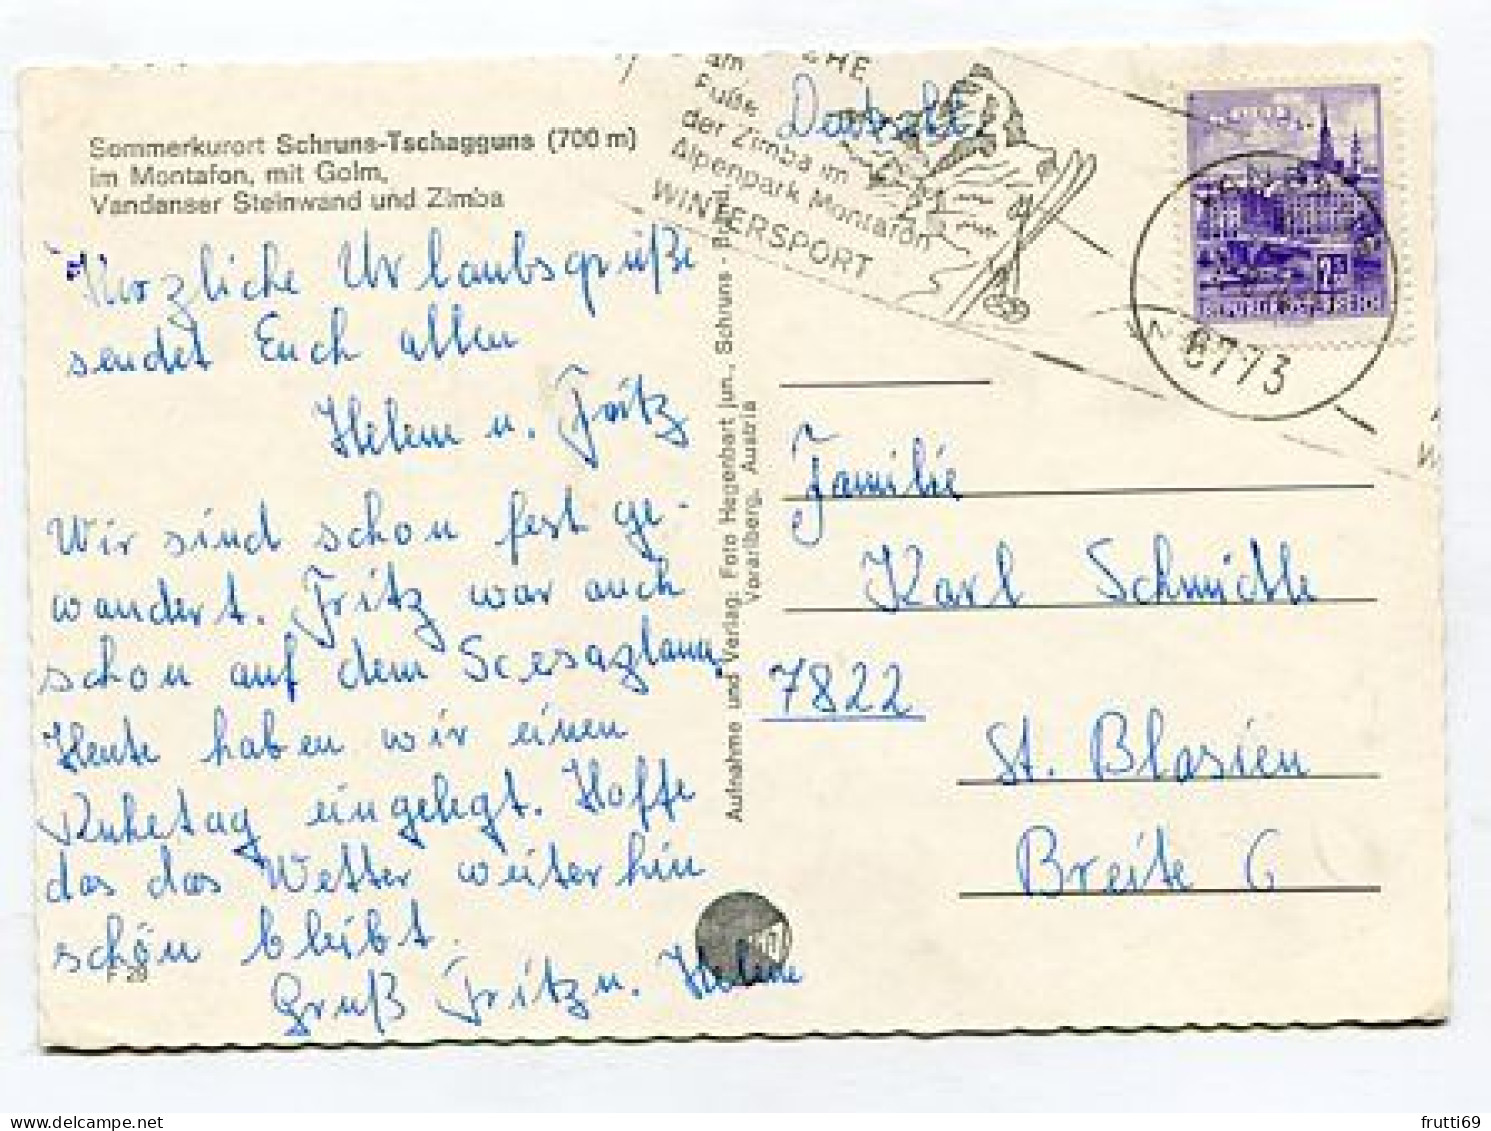 Sommerkurort Schruns-Tschagguns (700 m)
im Montafon, mit Golm,
Vandanser Steinwand und Zimba
Herzliche Urlaubsgrüße
sendet Euch allen
Helene u. Fritz
Wir sind schon fest ge-
wandert. Fritz war auch
schon auf dem Scesaplana.
Heute haben wir einen
Ruhetag eingelegt. Hoffe
das das Wetter weiterhin
schön bleibt.
Gruß Fritz u. Helene
F 29
Aufnahme und Verlag: Foto Hegenbart jun., Schruns -
Vorarlberg, Austria
am
Fuße
der Zimba im
Alpenpark Montafon
WINTERSPORT
2.50
REPUBLIK ÖSTERREICH
6773
Familie
Karl Schmidle
7822
St. Blasien
Breite 6
frutti69